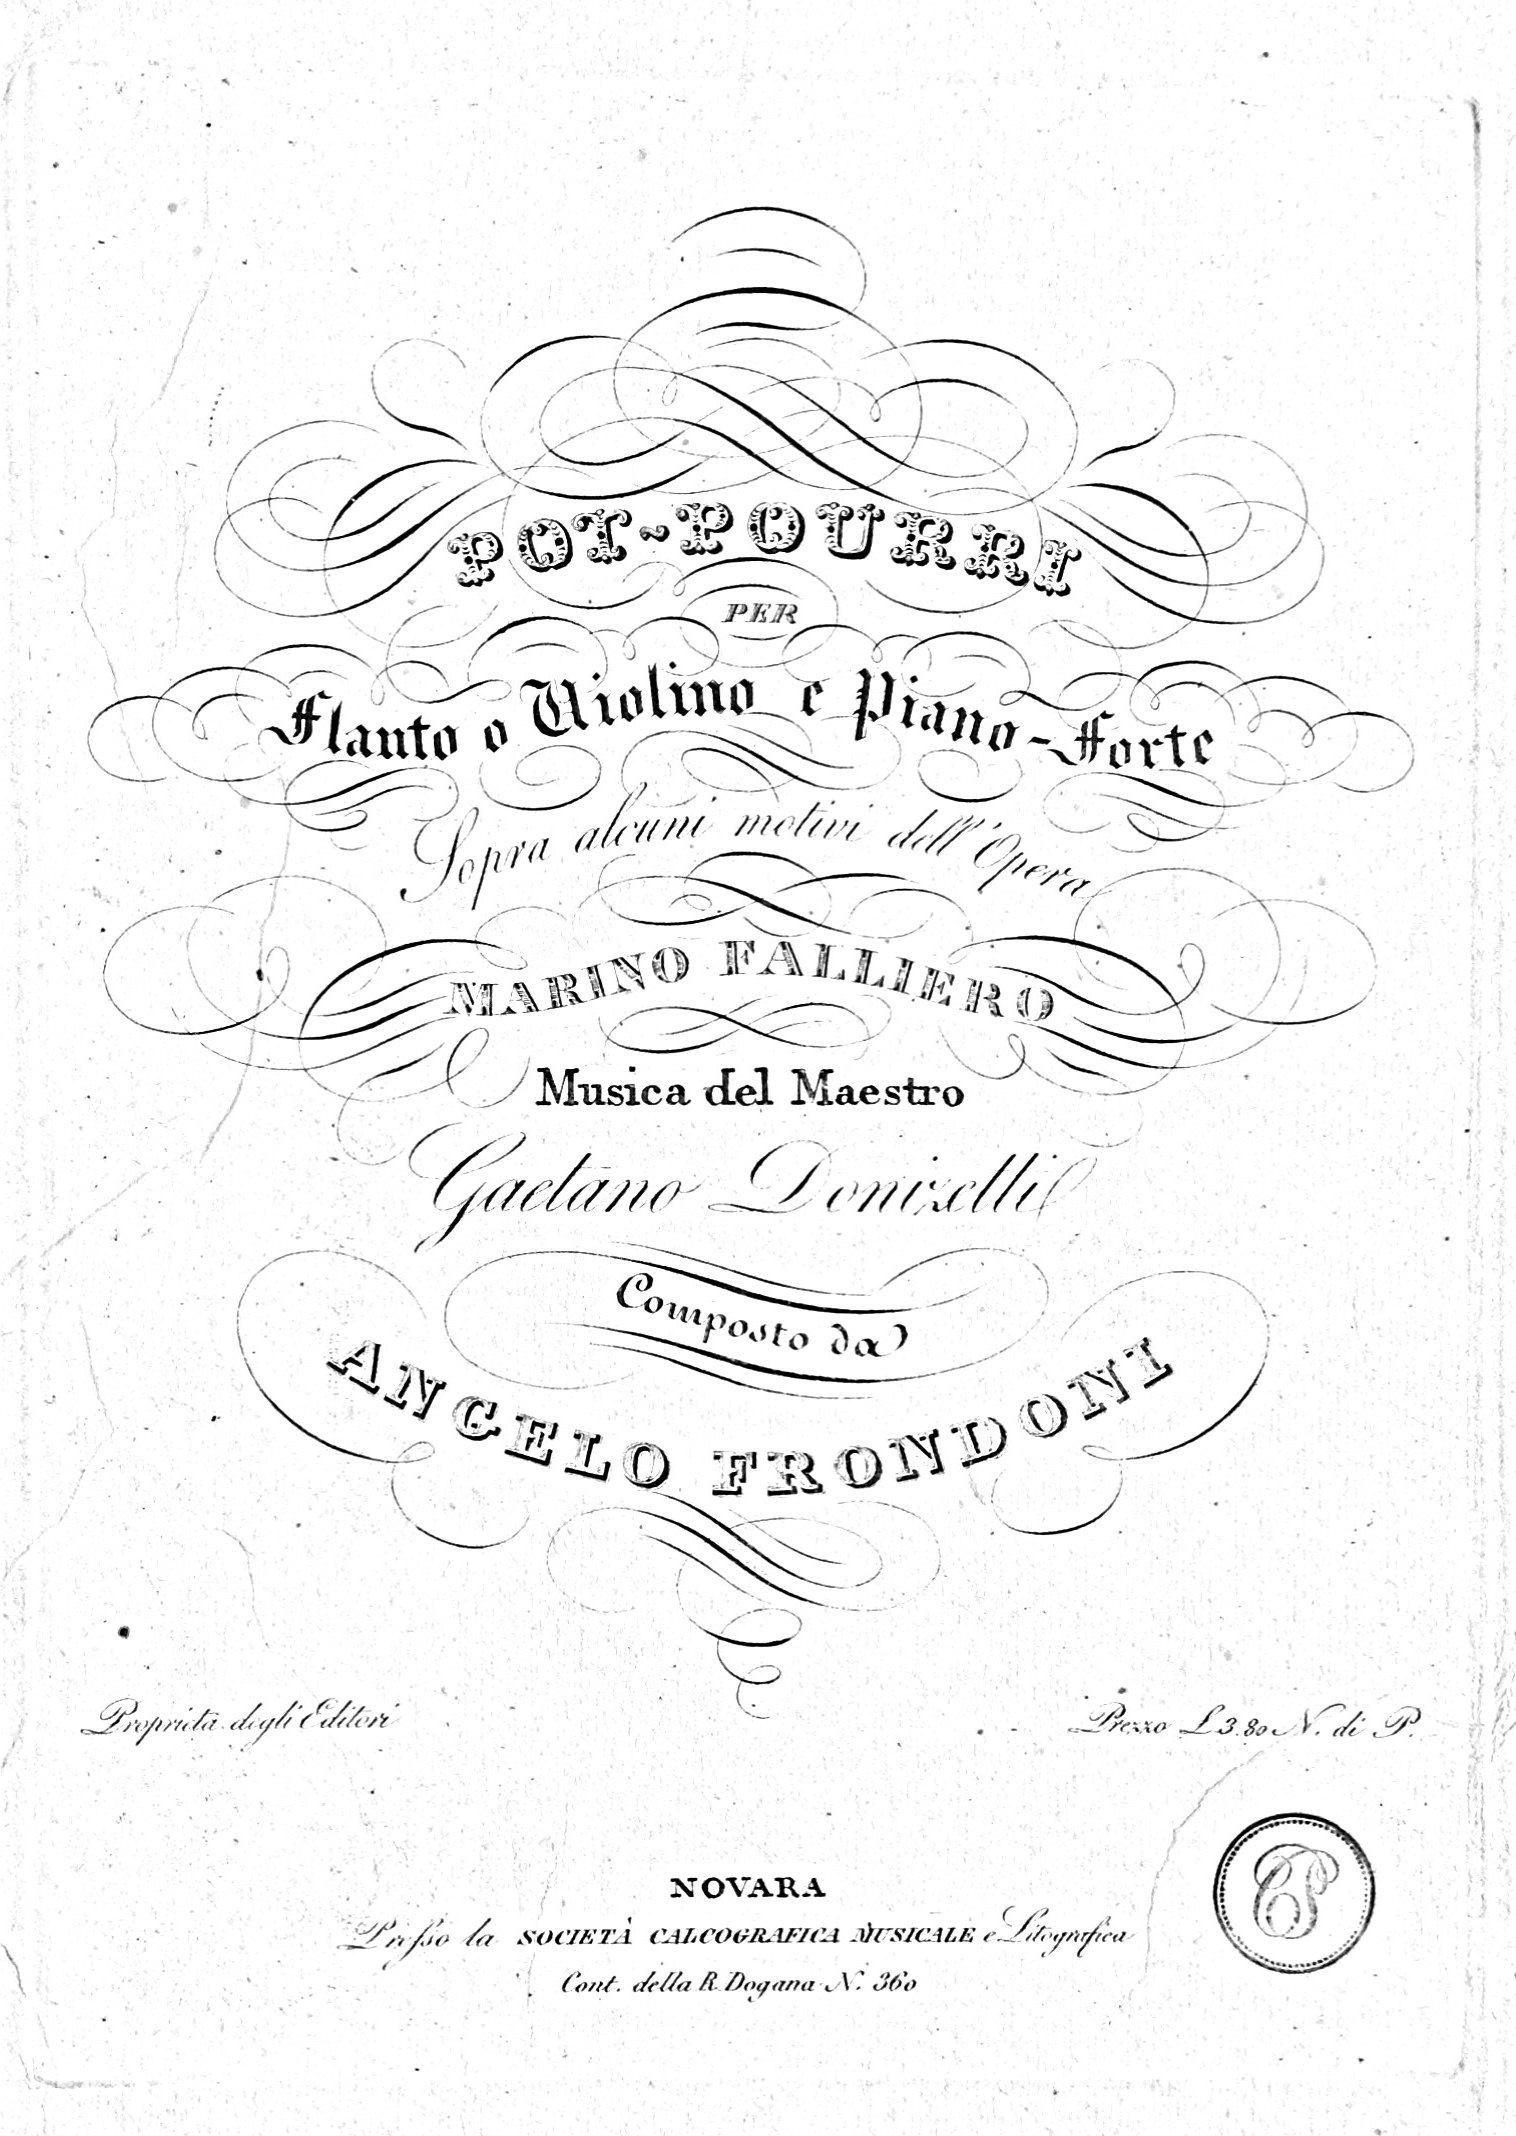 POT-POURRI
PER
Flauto o Violino e Piano-Forte
Sopra alcuni motivi dell'Opera
MARINO FALLIERO
Musica del Maestro
Gaetano Donizetti
Composto da
ANGELO FRONDONI
Proprietà degli Editori
Prezzo L 3.80 N. di P.
NOVARA
Presso la SOCIETÀ CALCOGRAFICA MUSICALE e Litografica
Cont. della R. Dogana N. 360